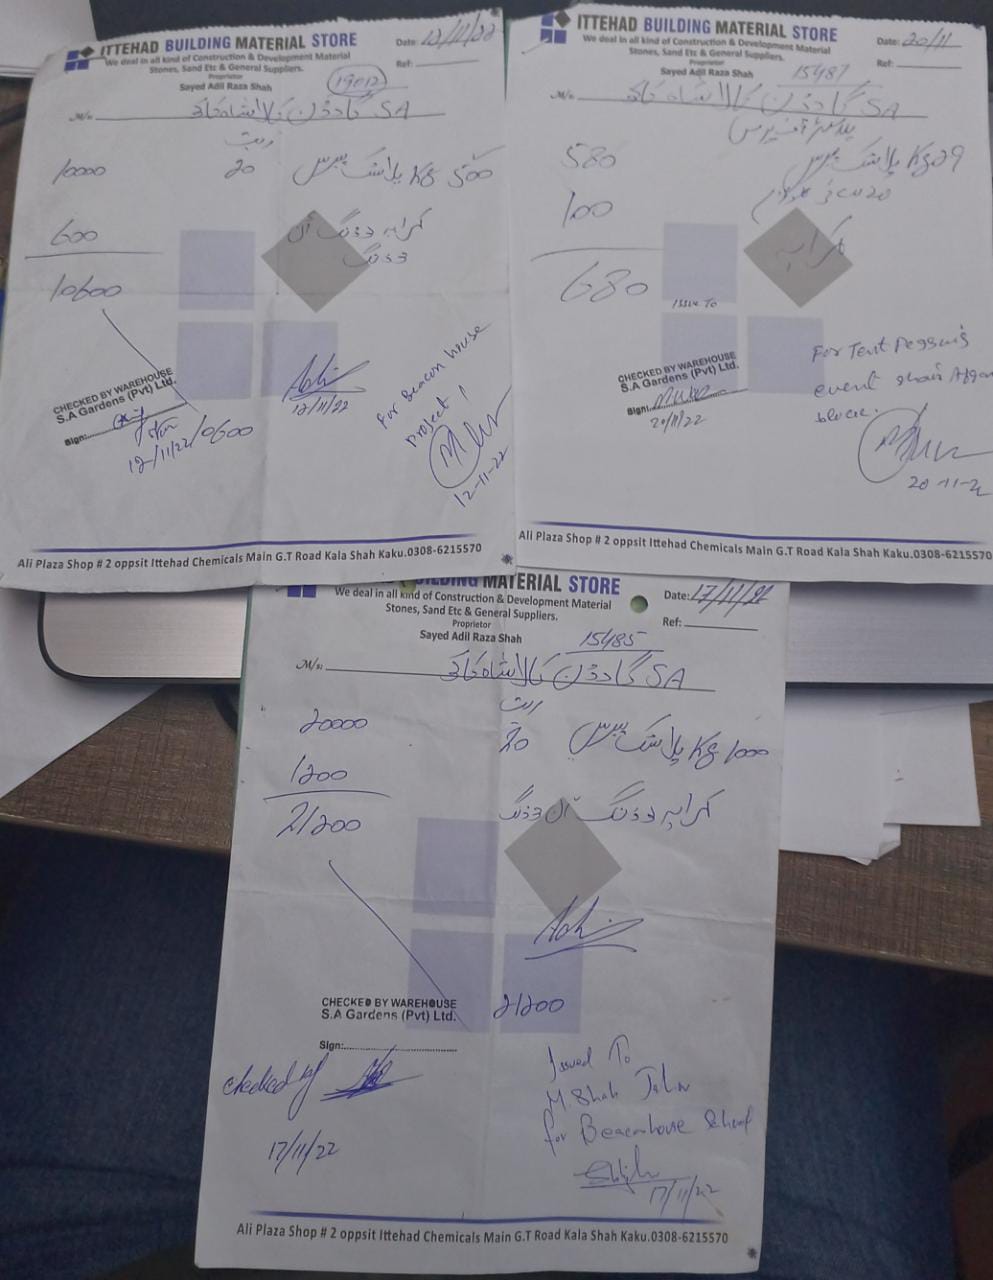 ITTEHAD BUILDING MATERIAL STORE
We deal in all kind of Construction & Development Material
Stones, Sand Etc & General Suppliers.
Proprietor
Sayed Adil Raza Shah
Date: 12/11/22
Ref:
19012
M/s: SA گارڈن کالاشاہ کاکو
ریٹ
10000 20 پلاسٹک پیرس Kg 500
600 کرایہ
10600
CHECKED BY WAREHOUSE
S.A Gardens (Pvt) Ltd.
Sign:
12/11/22
10600
12/11/22
For Beacon house
Project
12-11-22
Ali Plaza Shop # 2 oppsit Ittehad Chemicals Main G.T Road Kala Shah Kaku.0308-6215570
ITTEHAD BUILDING MATERIAL STORE
We deal in all kind of Construction & Development Material
Stones, Sand Etc & General Suppliers.
Proprietor
Sayed Adil Raza Shah
Date: 20/11
Ref:
15487
M/s: SA گارڈن کالاشاہ کاکو
580 پلاسٹک پیرس Kg 29
100 کرایہ
680
Issue To
CHECKED BY WAREHOUSE
S.A Gardens (Pvt) Ltd.
Sign:
20/11/22
For Tent Pegging
event
block.
20-11-2
Ali Plaza Shop # 2 oppsit Ittehad Chemicals Main G.T Road Kala Shah Kaku.0308-6215570
BUILDING MATERIAL STORE
We deal in all kind of Construction & Development Material
Stones, Sand Etc & General Suppliers.
Proprietor
Sayed Adil Raza Shah
Date: 17/11/22
Ref:
15485
M/s: SA گارڈن کالاشاہ کاکو
ریٹ
20000 20 پلاسٹک پیرس Kg 1000
1200 کرایہ
21200
21200
CHECKED BY WAREHOUSE
S.A Gardens (Pvt) Ltd.
Sign:
checked by
17/11/22
Issued To
M. Shah
for Beaconhouse School
17/11/22
Ali Plaza Shop # 2 oppsit Ittehad Chemicals Main G.T Road Kala Shah Kaku.0308-6215570